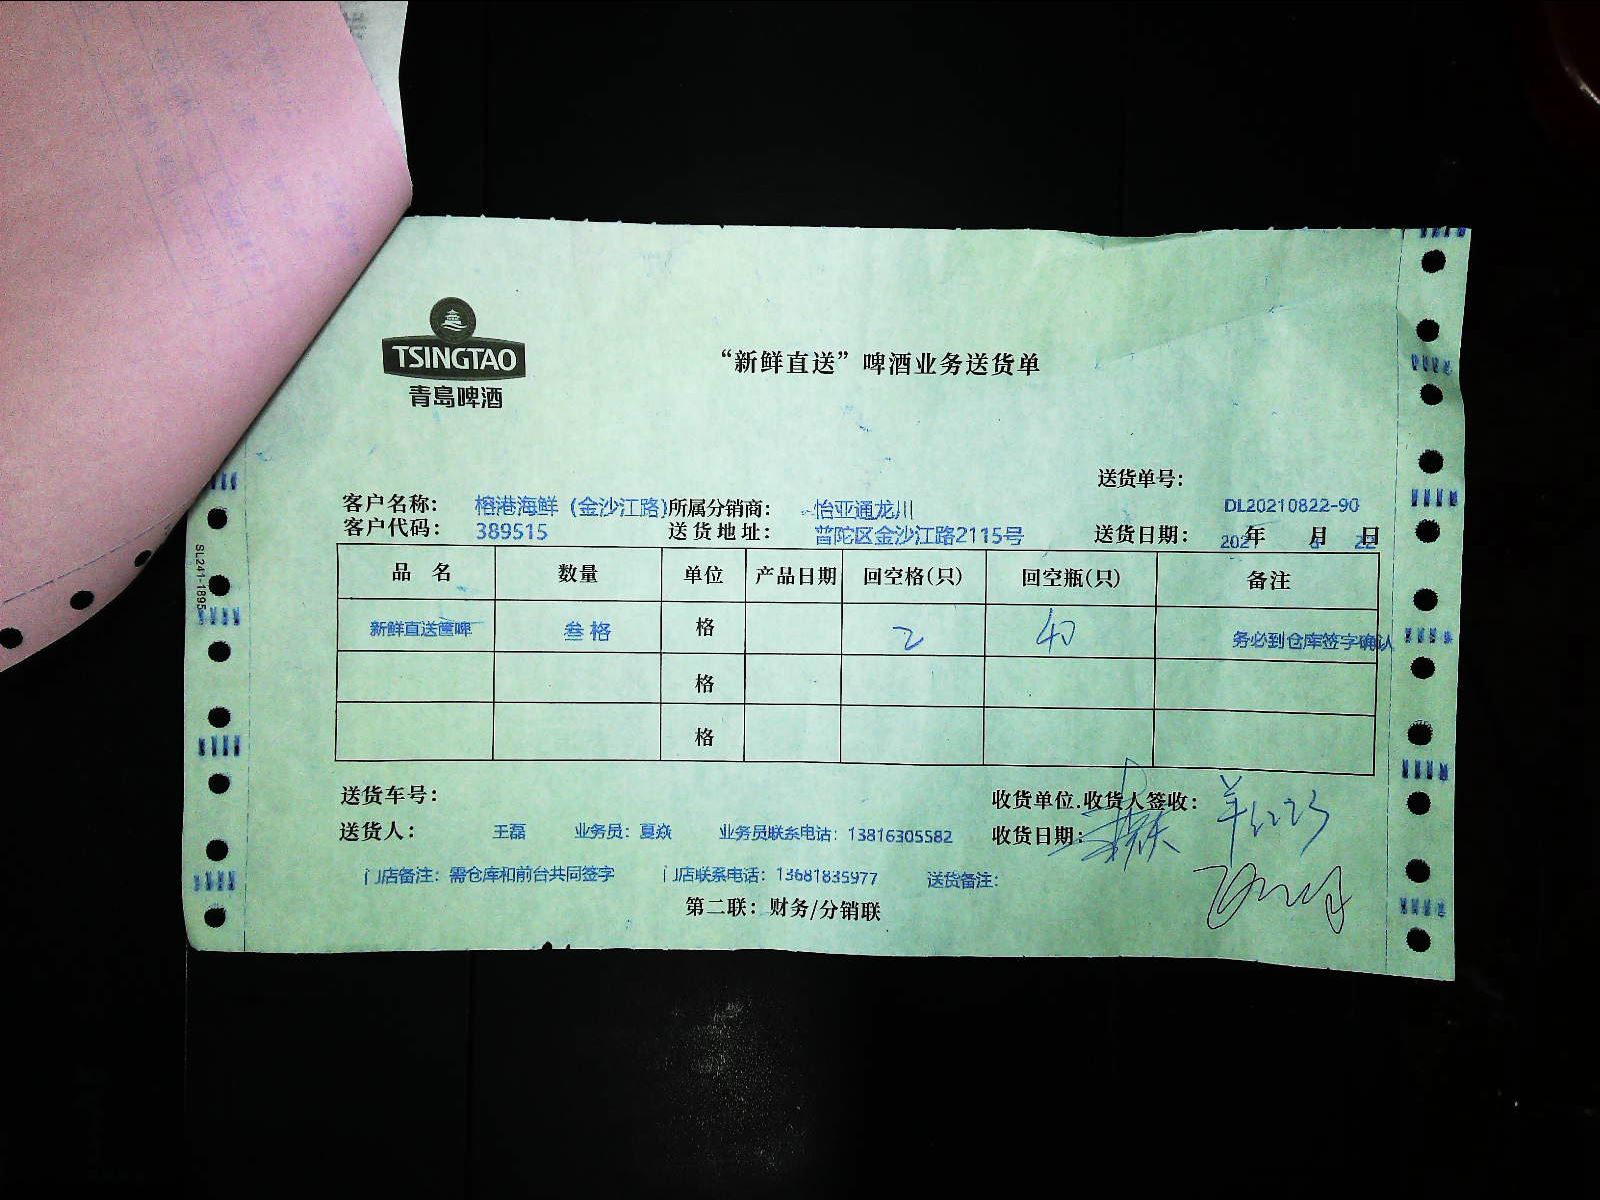 TSINGTAO
青岛啤酒
“新鲜直送”啤酒业务送货单
送货单号：
DL20210822-90
客户名称： 榕港海鲜（金沙江路） 所属分销商： 怡亚通龙川
客户代码： 389515 送货地址： 普陀区金沙江路2115号 送货日期： 2021年 8月 22日
品 名 数量 单位 产品日期 回空格(只) 回空瓶(只) 备注
新鲜直送筐啤 叁格 格 2 40 务必到仓库签字确认
格
格
送货车号： 收货单位.收货人签收：
送货人： 王磊 业务员：夏焱 业务员联系电话：13816305582 收货日期：
门店备注：需仓库和前台共同签字 门店联系电话：13681835977 送货备注：
第二联：财务/分销联
SL241-1895